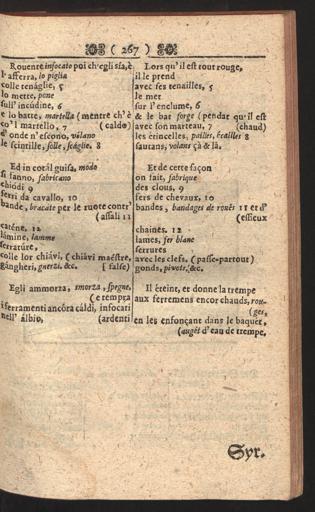 ( 267 )
Rovente infocato poi ch'egli sia, è
l'afferra, lo piglia
colle tenáglie, 5
lo mette, pone
sull' incúdine, 6
e lo batte, martella ( mentre ch'è
co'l martello, 7 ( caldo )
d'onde n'escono, vólano
le scintille, folle, scáglie, 8
Ed in cotál guisa, modo
si fanno, fabricano
chiódi 9
ferri da cavallo, 10
bande, bracate per le ruote contr'
( assali 11
caténe, 12
lámine, lamme
serrature,
colle lor chiávi, ( chiávi maéstre,
gángheri, &c. ( false )
Egli ammorza, smorza, spegne,
( e tempra
i ferramenti ancóra cáldi, infocati
nell' álbio, (ardenti
Lors qu'il est tout rouge,
il le prend
avec ses tenailles, 5
le met
sur l'enclume, 6
& le bat forge ( pendar qu'il est
avec son marteau, 7 (chaud)
les étincelles, pailles, écailles 8
sautans, volans çà & là.
Et de cette façon
on fait, fabrique
des clous, 9
fers de chevaux, 10
bandes, bandages de rouës 11 et d'
(essieux
chainés. 12
lames, fer blanc
serrures
avec les clefs, ( passe-partout )
gonds, pivots, &c.
Il éteint, et donne la trempe
aux ferremens encor chauds, rou-
(ges,
en les enfonçant dans le baquet,
(augét d'eau de trempe,
Syr.